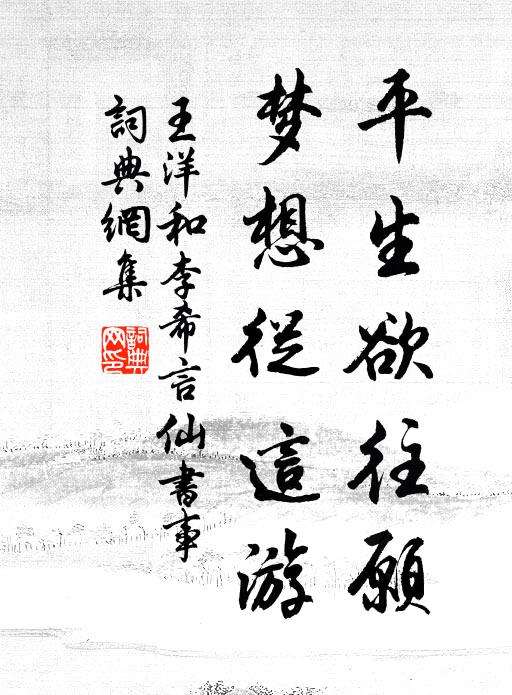 平生欲往願
梦想從這游
王洋和李希言仙書事
詞典網集
詞典网印